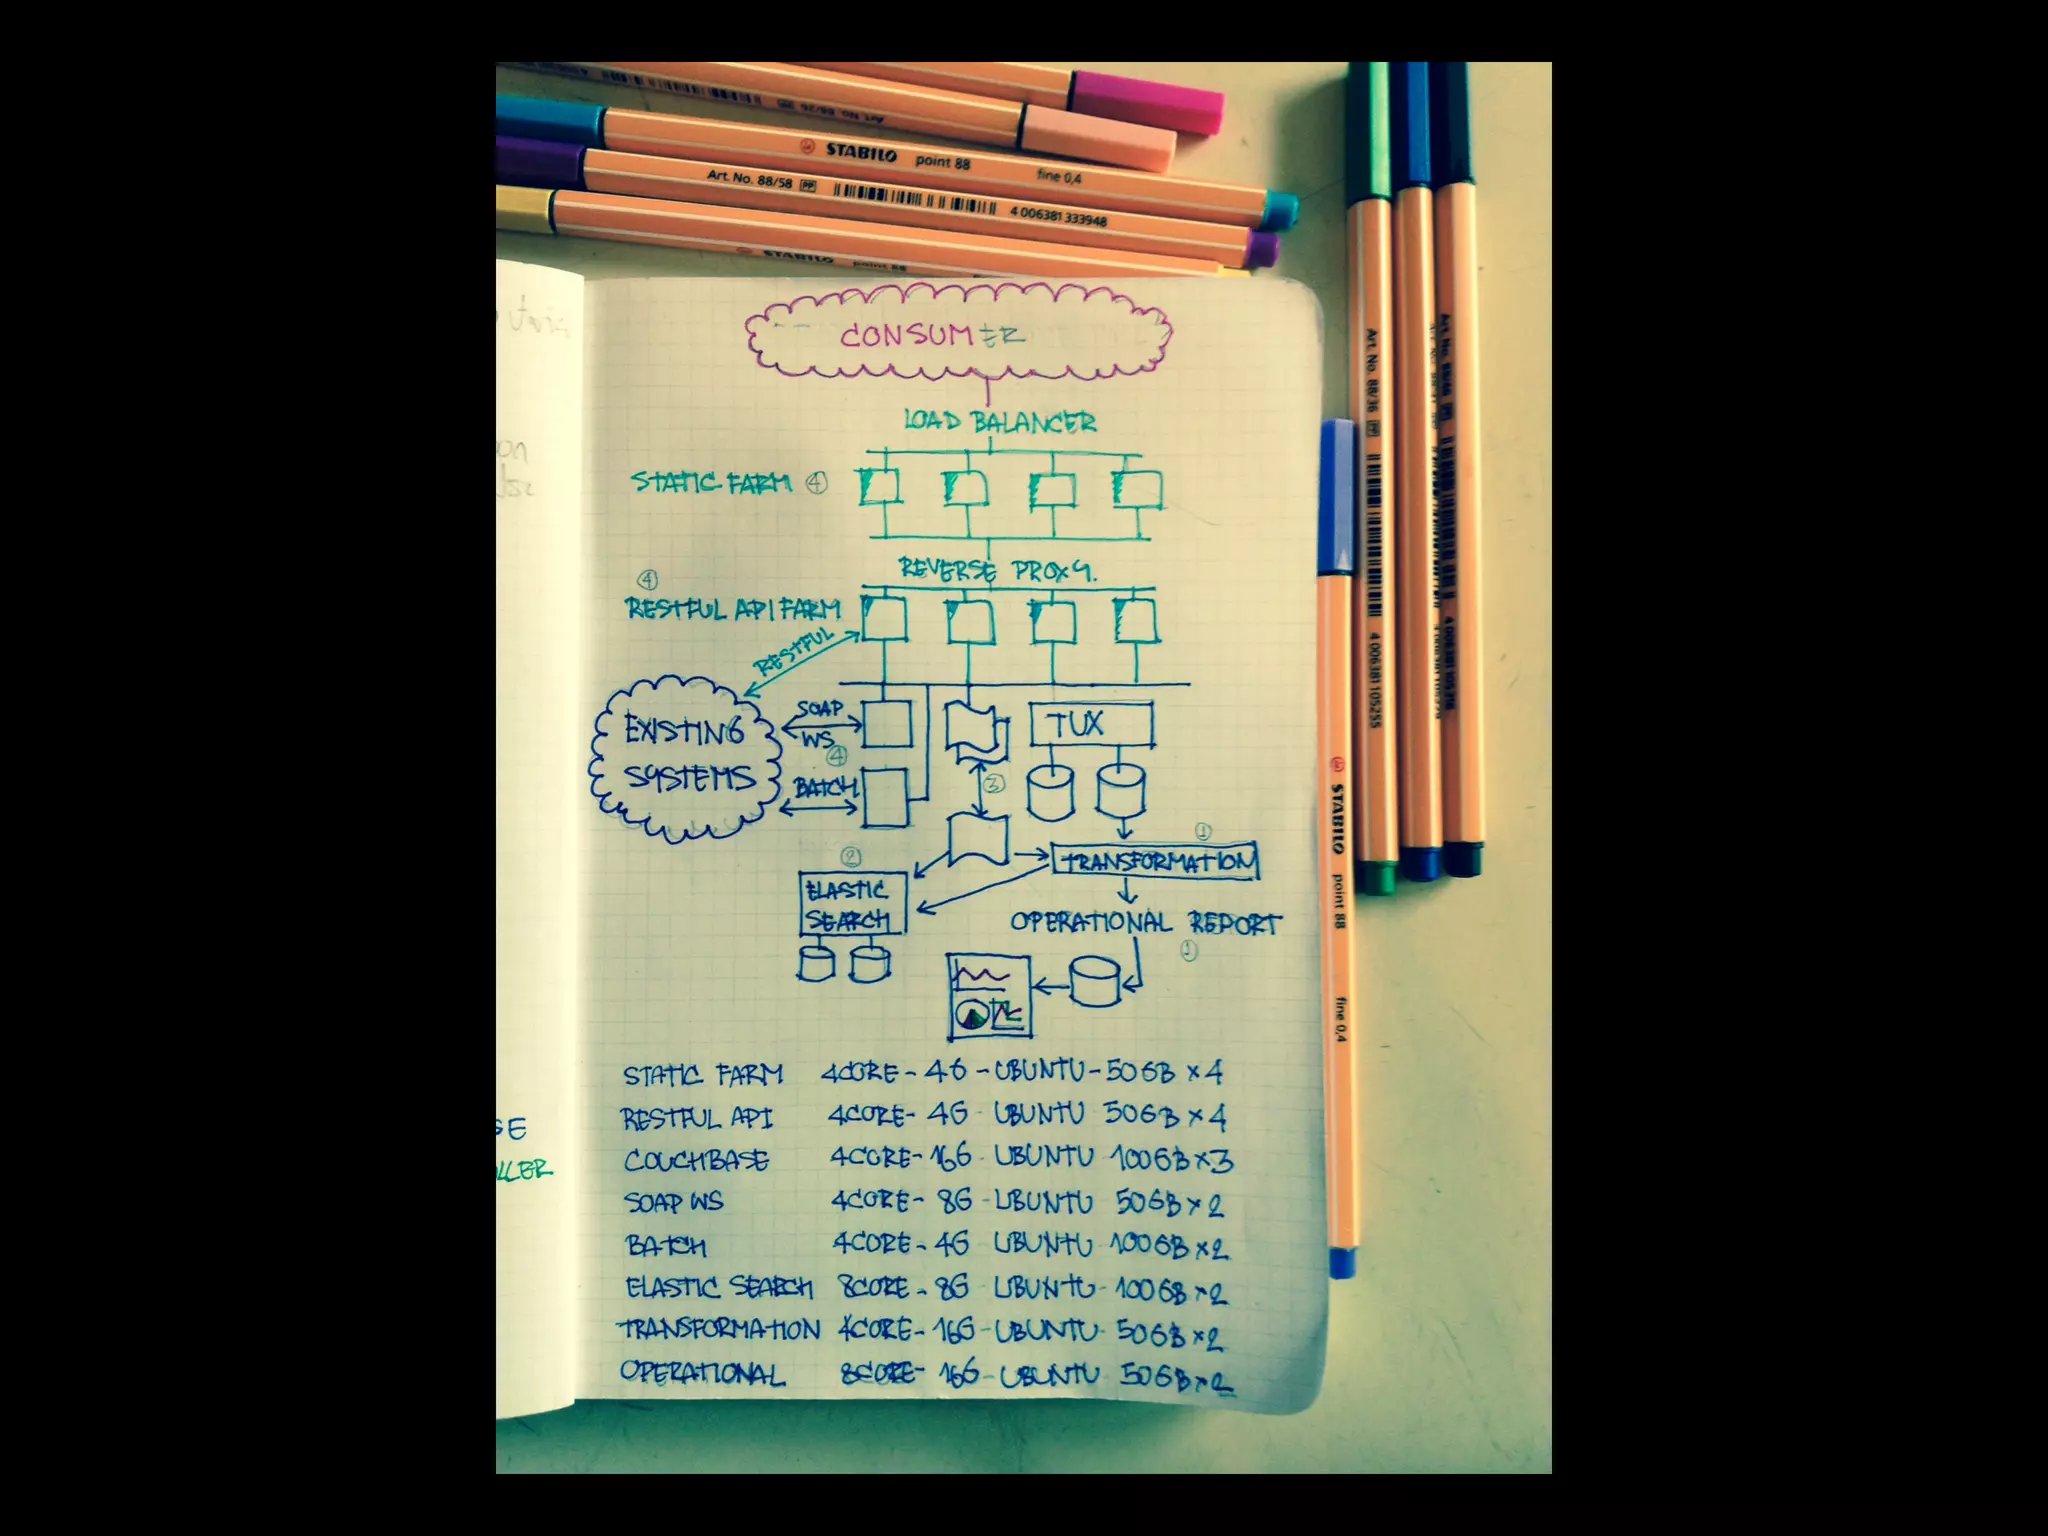 Art. No. 88/26
STABILO point 88 fine 0,4
Art. No. 88/58 PP 4 006381 333948
STABILO point 88
CONSUMER
LOAD BALANCER
STATIC FARM 4
REVERSE PROXY.
4
RESTFUL API FARM
RESTFUL
EXISTING
SYSTEMS
SOAP
WS
4
BATCH
TUX
3
1
TRANSFORMATION
2
ELASTIC
SEARCH
OPERATIONAL REPORT
1
STATIC FARM 4CORE - 4G - UBUNTU - 50GB x 4
RESTFUL API 4CORE - 4G - UBUNTU 50GB x 4
COUCHBASE 4CORE - 16G - UBUNTU 100GB x 3
SOAP WS 4CORE - 8G - UBUNTU 50GB x 2
BATCH 4CORE - 4G UBUNTU - 100GB x 2
ELASTIC SEARCH 8CORE - 8G - UBUNTU - 100GB x 2
TRANSFORMATION 4CORE - 16G - UBUNTU - 50GB x 2
OPERATIONAL 8CORE - 16G - UBUNTU 50GB x 2
SE
LLER
Art. No. 88/36 PP 4 006381 105255
STABILO point 88 fine 0,4